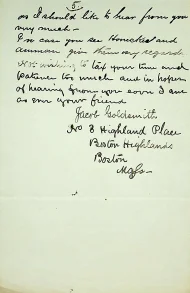 5
as I should like to hear from you
very much —
In case you see Homokes and
Ammon give them my regards
Not wishing to tax your time and
patience too much and in hopes
of hearing from you soon I am
as ever your friend
Jacob Goldsmith
No 8 Highland Place
Boston Highlands
Boston
Mass —